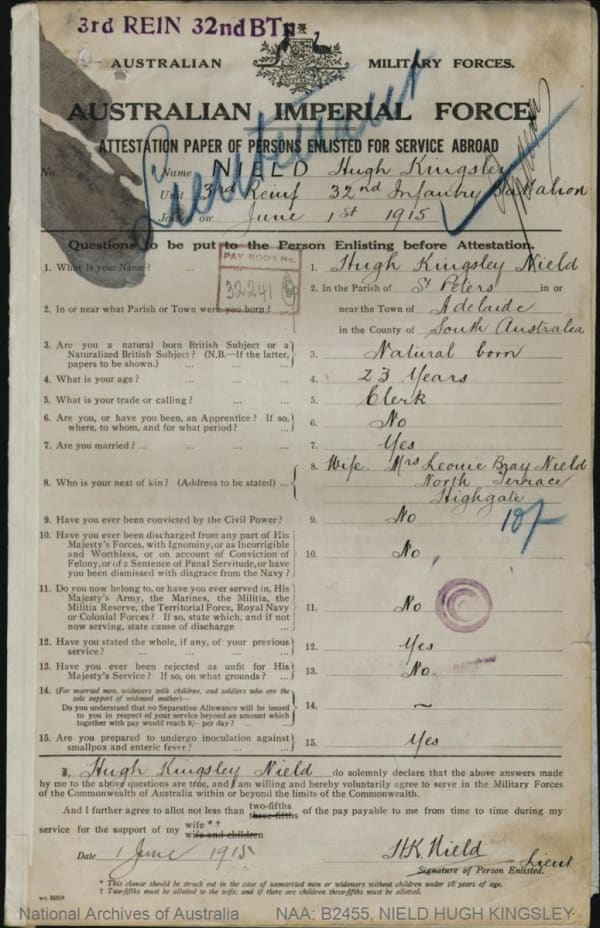 3rd REIN 32nd BTn
AUSTRALIAN MILITARY FORCES.
AUSTRALIAN IMPERIAL FORCE.
Lieutenant
ATTESTATION PAPER OF PERSONS ENLISTED FOR SERVICE ABROAD
No. Name NIELD Hugh Kingsley
Unit 3rd Reinf 32nd Infantry Battalion
Joined on June 1st 1915
Questions to be put to the Person Enlisting before Attestation.
PAY BOOK No.
32241
1. What is your Name? ... ... 1. Hugh Kingsley Nield
2. In or near what Parish or Town were you born? ... 2. In the Parish of St Peters in or
near the Town of Adelaide
in the County of South Australia
3. Are you a natural born British Subject or a
Naturalized British Subject? (N.B.—If the latter,
papers to be shown.) ... ... 3. Natural born
4. What is your age? ... ... 4. 23 Years
5. What is your trade or calling? ... ... 5. Clerk
6. Are you, or have you been, an Apprentice? If so,
where, to whom, and for what period? ... 6. No
7. Are you married? ... ... ... 7. Yes
8. Who is your next of kin? (Address to be stated) ... 8. Wife. Mrs Leonie Bray Nield
North Terrace
Highgate
9. Have you ever been convicted by the Civil Power? ... 9. No
10. Have you ever been discharged from any part of His
Majesty's Forces, with Ignominy, or as Incorrigible
and Worthless, or on account of Conviction of
Felony, or of a Sentence of Penal Servitude, or have
you been dismissed with disgrace from the Navy? 10. No
11. Do you now belong to, or have you ever served in, His
Majesty's Army, the Marines, the Militia, the
Militia Reserve, the Territorial Force, Royal Navy
or Colonial Forces? If so, state which, and if not
now serving, state cause of discharge ... 11. No
12. Have you stated the whole, if any, of your previous
service? ... ... ... 12. Yes
13. Have you ever been rejected as unfit for His
Majesty's Service? If so, on what grounds? ... 13. No
14. (For married men, widowers with children, and soldiers who are the
sole support of widowed mother)—
Do you understand that no Separation Allowance will be issued
to you in respect of your service beyond an amount which
together with pay would reach 8/- per day? ... 14. ~
15. Are you prepared to undergo inoculation against
smallpox and enteric fever? ... ... ... 15. Yes
I, Hugh Kingsley Nield do solemnly declare that the above answers made
by me to the above questions are true, and I am willing and hereby voluntarily agree to serve in the Military Forces
of the Commonwealth of Australia within or beyond the limits of the Commonwealth.
And I further agree to allot not less than two-fifths three-fifths of the pay payable to me from time to time during my
service for the support of my wife *† wife and children
Date 1 June 1915 H.K. Nield Lieut
Signature of Person Enlisted.
* This clause should be struck out in the case of unmarried men or widowers without children under 18 years of age.
† Two-fifths must be allotted to the wife, and if there are children three-fifths must be allotted.
National Archives of Australia NAA: B2455, NIELD HUGH KINGSLEY